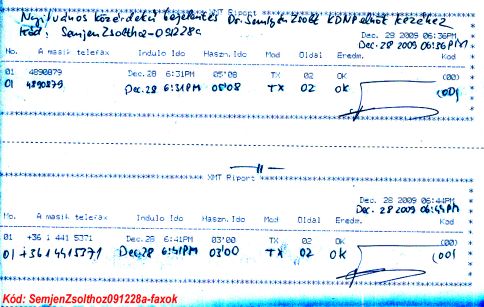 Nyilvános közérdekű bejelentés Dr. Semjén Zsolt KDNP elnök kezéhez
Kód: SemjenZsolthoz-091228a
Dec. 28 2009 06:36PM
Dec. 28 2009 06:36PM
* * * XMT Riport * * *
No. A masik telefax Indulo Ido Haszn.Ido Mod Oldal Eredm. Kod
01 4890879 Dec.28 6:31PM 05'08 TX 02 OK (00)
01 4890879 Dec.28 6:31PM 05'08 TX 02 OK (00)
XMT Riport
Dec. 28 2009 06:44PM
Dec. 28 2009 06:44PM
No. A masik telefax Indulo Ido Haszn.Ido Mod Oldal Eredm. Kod
01 +36 1 441 5371 Dec.28 6:41PM 03'00 TX 02 OK (00)
01 +36 1 441 5371 Dec.28 6:41PM 03'00 TX 02 OK (00)
Kód: SemjenZsolthoz091228a-faxok